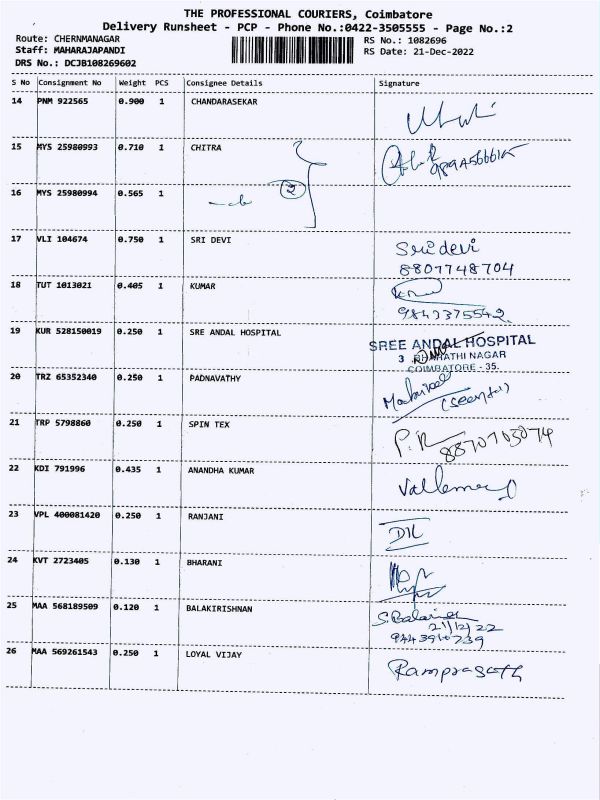 THE PROFESSIONAL COURIERS, Coimbatore
Delivery Runsheet - PCP - Phone No.:0422-3505555 - Page No.:2
Route: CHERNMANAGAR
RS No.: 1082696
Staff: MAHARAJAPANDI
RS Date: 21-Dec-2022
DRS No.: DCJB108269602
S No Consignment No Weight PCS Consignee Details Signature
14 PNM 922565 0.900 1 CHANDARASEKAR
15 MYS 25980993 0.710 1 CHITRA
16 MYS 25980994 0.565 1
2
17 VLI 104674 0.750 1 SRI DEVI Sri devi
8807748704
18 TUT 1013021 0.405 1 KUMAR
9842375542
19 KUR 528150019 0.250 1 SRE ANDAL HOSPITAL SREE ANDAL HOSPITAL
3 BHARATHI NAGAR
COIMBATORE - 35.
20 TRZ 65352340 0.250 1 PADNAVATHY
21 TRP 5798860 0.250 1 SPIN TEX P.R
8870703074
22 KDI 791996 0.435 1 ANANDHA KUMAR
23 VPL 400081420 0.250 1 RANJANI
24 KVT 2723405 0.130 1 BHARANI
25 MAA 568189509 0.120 1 BALAKIRISHNAN
21/12/22
26 MAA 569261543 0.250 1 LOYAL VIJAY Ramprasath